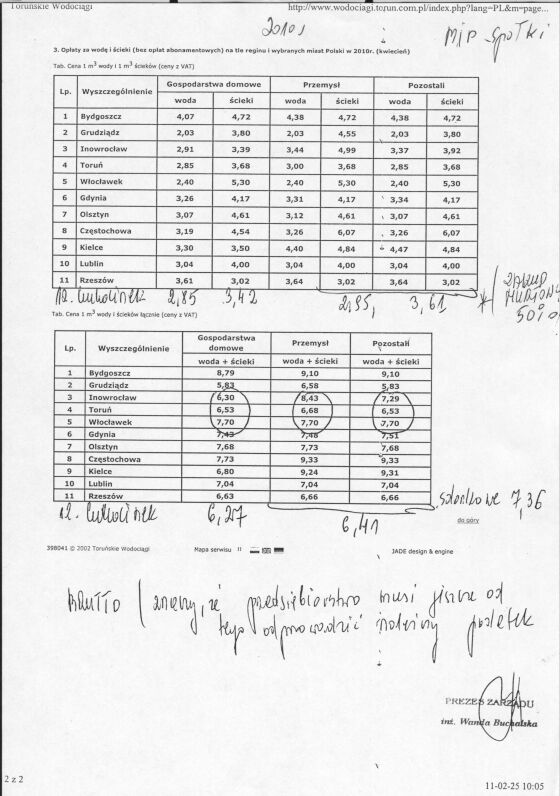 Toruńskie Wodociągi http://www.wodociagi.torun.com.pl/index.php?lang=PL&m=page...
2010
3. Opłaty za wodę i ścieki (bez opłat abonamentowych) na tle reginu i wybranych miast Polski w 2010r. (kwiecień)
Tab. Cena 1 m³ wody i 1 m³ ścieków (ceny z VAT)
Lp. Wyszczególnienie Gospodarstwa domowe Przemysł Pozostali
woda ścieki woda ścieki woda ścieki
1 Bydgoszcz 4,07 4,72 4,38 4,72 4,38 4,72
2 Grudziądz 2,03 3,80 2,03 4,55 2,03 3,80
3 Inowrocław 2,91 3,39 3,44 4,99 3,37 3,92
4 Toruń 2,85 3,68 3,00 3,68 2,85 3,68
5 Włocławek 2,40 5,30 2,40 5,30 2,40 5,30
6 Gdynia 3,26 4,17 3,31 4,17 3,34 4,17
7 Olsztyn 3,07 4,61 3,12 4,61 3,07 4,61
8 Częstochowa 3,19 4,54 3,26 6,07 3,26 6,07
9 Kielce 3,30 3,50 4,40 4,84 4,47 4,84
10 Lublin 3,04 4,00 3,04 4,00 3,04 4,00
11 Rzeszów 3,61 3,02 3,64 3,02 3,64 3,02
12. 2,85 3,42 2,95, 3,61
Tab. Cena 1 m³ wody i ścieków łącznie (ceny z VAT)
Lp. Wyszczególnienie Gospodarstwa domowe Przemysł Pozostali
woda + ścieki woda + ścieki woda + ścieki
1 Bydgoszcz 8,79 9,10 9,10
2 Grudziądz 5,83 6,58 5,83
3 Inowrocław 6,30 8,43 7,29
4 Toruń 6,53 6,68 6,53
5 Włocławek 7,70 7,70 7,70
6 Gdynia 7,43 7,48 7,51
7 Olsztyn 7,68 7,73 7,68
8 Częstochowa 7,73 9,33 9,33
9 Kielce 6,80 9,24 9,31
10 Lublin 7,04 7,04 7,04
11 Rzeszów 6,63 6,66 6,66
12. 6,27 6,41 7,36
do góry
398041 © 2002 Toruńskie Wodociągi Mapa serwisu JADE design & engine
BRUTTO przedsiębiorstwo musi jeszcze od
tego odprowadzić należny podatek
PREZES ZARZĄDU
inż. Wanda Buchalska
2 z 2
11-02-25 10:05